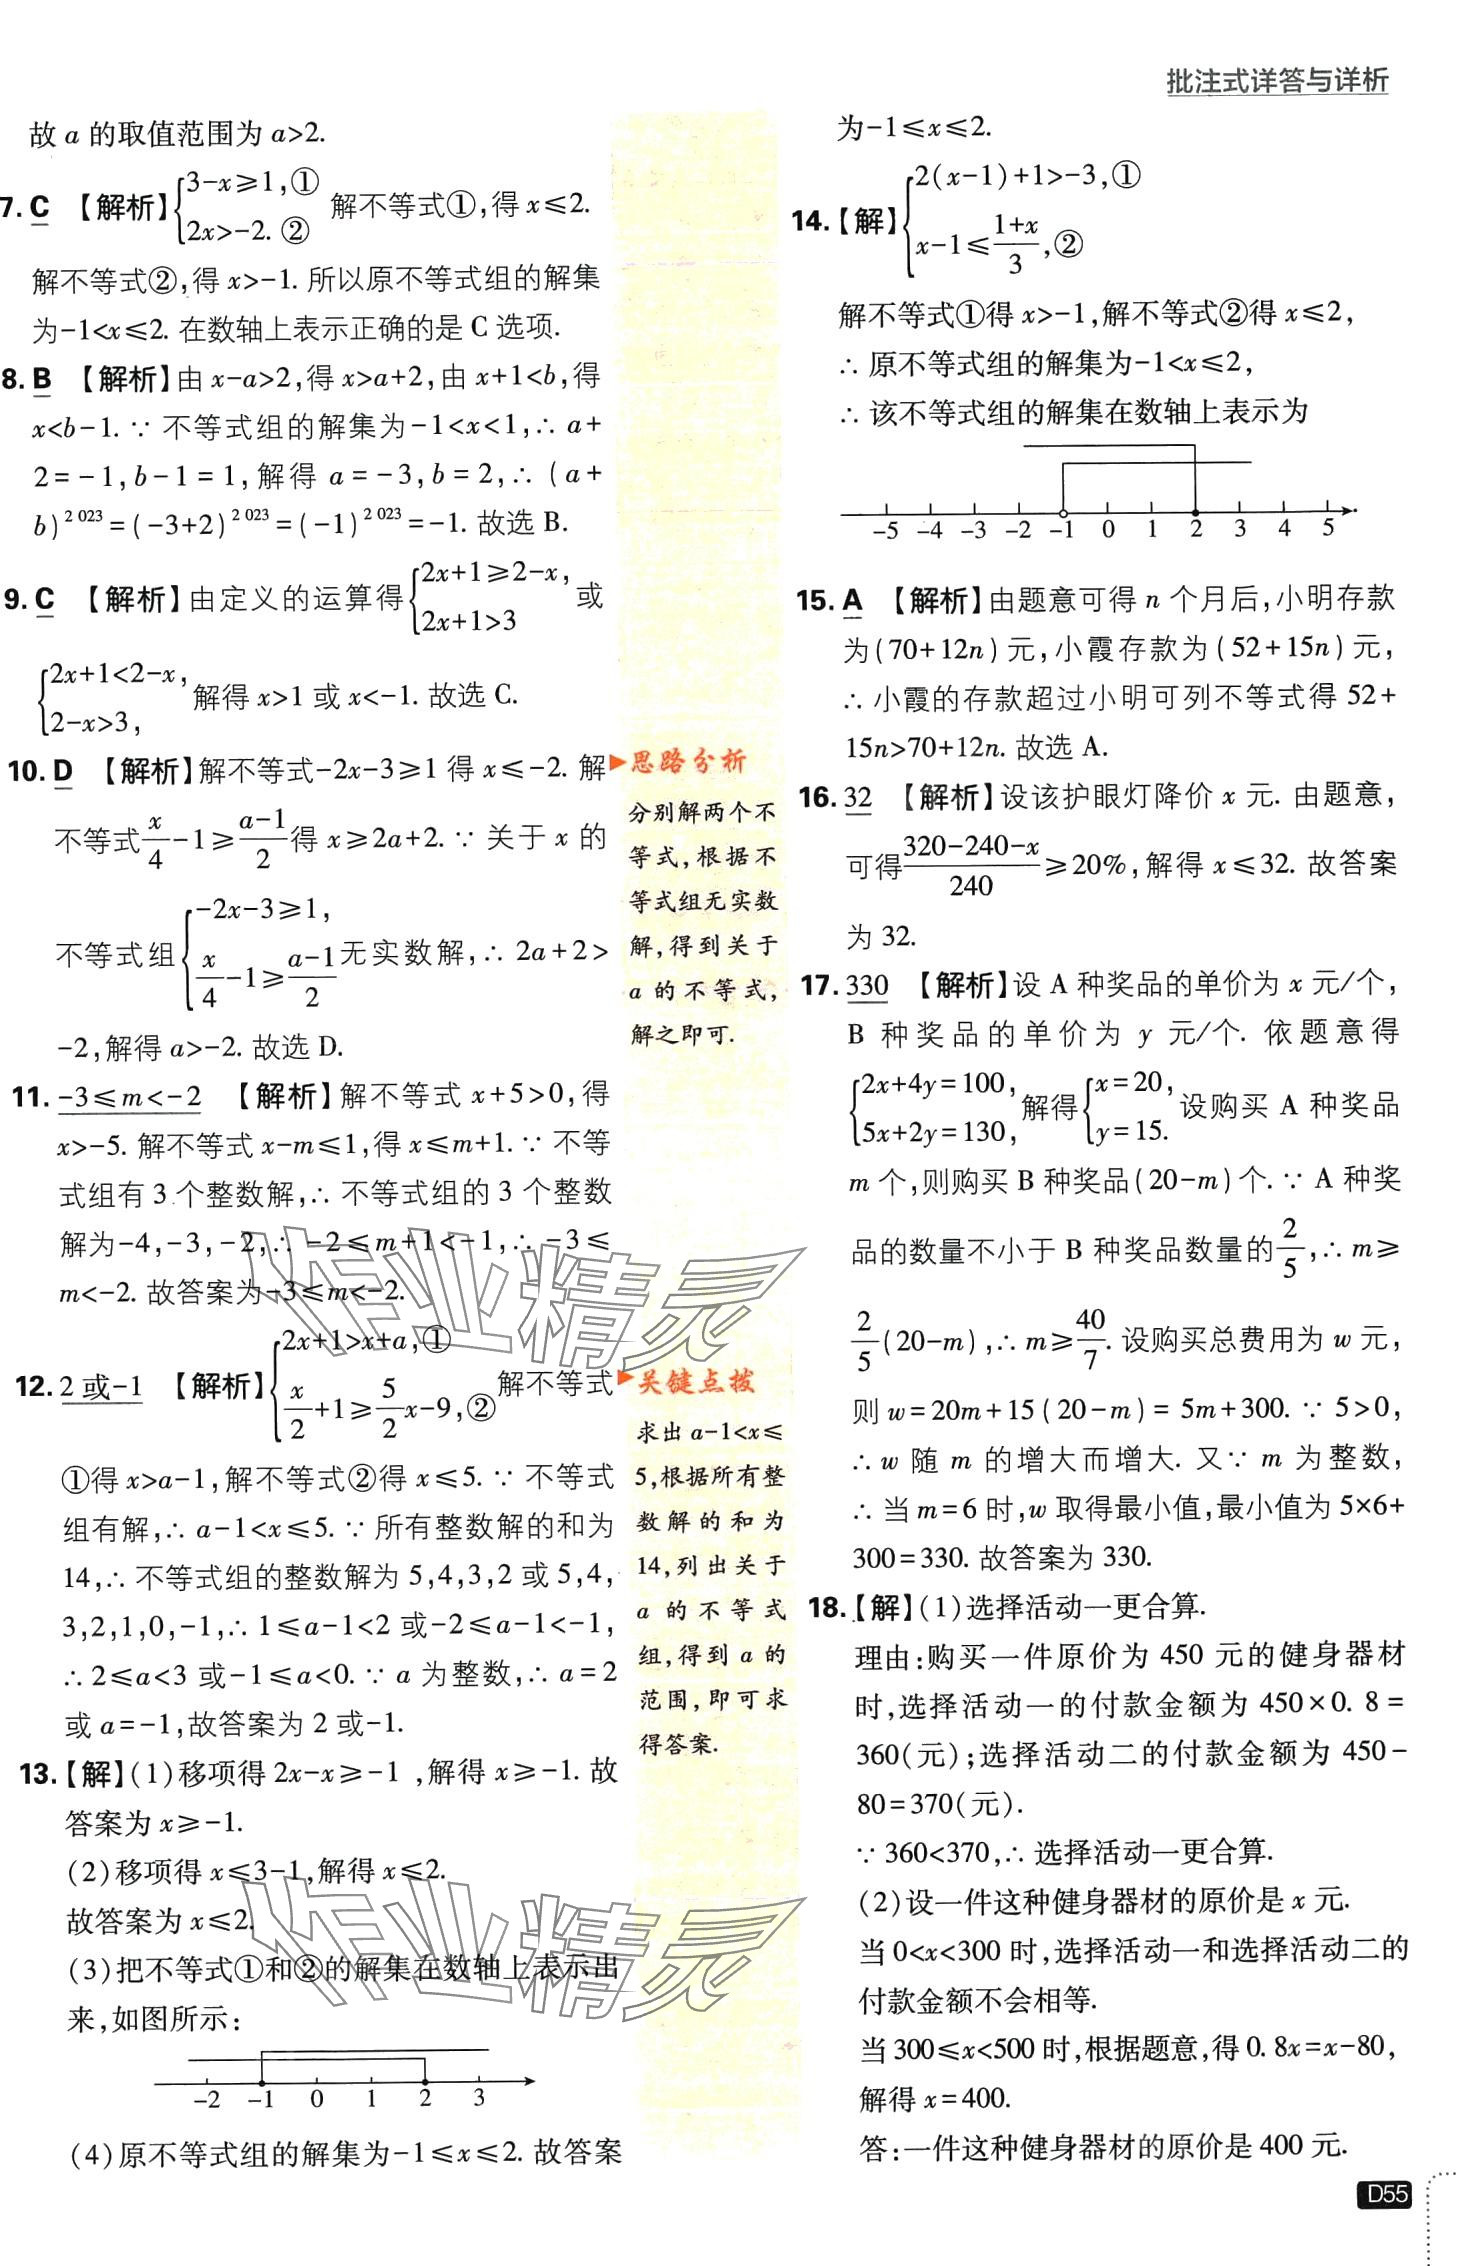 批注式详答与详析
故 a 的取值范围为 a>2.
7. C 【解析】{3-x≥1,① 2x>-2. ② 解不等式①,得 x≤2.
解不等式②,得 x>-1. 所以原不等式组的解集
为-1<x≤2. 在数轴上表示正确的是 C 选项.
8. B 【解析】由 x-a>2,得 x>a+2,由 x+1<b,得
x<b-1. ∵ 不等式组的解集为-1<x<1,∴ a+
2=-1,b-1=1,解得 a=-3,b=2,∴ (a+
b)^2 023=(-3+2)^2 023=(-1)^2 023=-1. 故选 B.
9. C 【解析】由定义的运算得{2x+1≥2-x, 2x+1>3 或
{2x+1<2-x, 2-x>3, 解得 x>1 或 x<-1. 故选 C.
10. D 【解析】解不等式-2x-3≥1 得 x≤-2. 解
不等式x/4-1≥(a-1)/2得 x≥2a+2. ∵ 关于 x 的
不等式组{-2x-3≥1, x/4-1≥(a-1)/2 无实数解,∴ 2a+2>
-2,解得 a>-2. 故选 D.
11. -3≤m<-2 【解析】解不等式 x+5>0,得
x>-5. 解不等式 x-m≤1,得 x≤m+1. ∵ 不等
式组有 3 个整数解,∴ 不等式组的 3 个整数
解为-4,-3,-2,∴ -2≤m+1<-1,∴ -3≤
m<-2. 故答案为-3≤m<-2.
12. 2 或-1 【解析】{2x+1>x+a,① x/2+1≥5/2x-9,② 解不等式
①得 x>a-1,解不等式②得 x≤5. ∵ 不等式
组有解,∴ a-1<x≤5. ∵ 所有整数解的和为
14,∴ 不等式组的整数解为 5,4,3,2 或 5,4,
3,2,1,0,-1,∴ 1≤a-1<2 或-2≤a-1<-1,
∴ 2≤a<3 或-1≤a<0. ∵ a 为整数,∴ a=2
或 a=-1,故答案为 2 或-1.
13.【解】(1)移项得 2x-x≥-1 ,解得 x≥-1. 故
答案为 x≥-1.
(2)移项得 x≤3-1,解得 x≤2.
故答案为 x≤2.
(3)把不等式①和②的解集在数轴上表示出
来,如图所示:
-2 -1 0 1 2 3
(4)原不等式组的解集为-1≤x≤2. 故答案
思路分析
分别解两个不
等式,根据不
等式组无实数
解,得到关于
a 的不等式,
解之即可.
关键点拨
求出 a-1<x≤
5,根据所有整
数解的和为
14,列出关于
a 的不等式
组,得到 a 的
范围,即可求
得答案.
为-1≤x≤2.
14.【解】{2(x-1)+1>-3,① x-1≤(1+x)/3,②
解不等式①得 x>-1,解不等式②得 x≤2,
∴ 原不等式组的解集为-1<x≤2,
∴ 该不等式组的解集在数轴上表示为
-5 -4 -3 -2 -1 0 1 2 3 4 5
15. A 【解析】由题意可得 n 个月后,小明存款
为(70+12n)元,小霞存款为(52+15n)元,
∴ 小霞的存款超过小明可列不等式得 52+
15n>70+12n. 故选 A.
16. 32 【解析】设该护眼灯降价 x 元. 由题意,
可得(320-240-x)/240≥20%,解得 x≤32. 故答案
为 32.
17. 330 【解析】设 A 种奖品的单价为 x 元/个,
B 种奖品的单价为 y 元/个. 依题意得
{2x+4y=100, 5x+2y=130, 解得{x=20, y=15. 设购买 A 种奖品
m 个,则购买 B 种奖品(20-m)个. ∵ A 种奖
品的数量不小于 B 种奖品数量的2/5,∴ m≥
2/5(20-m),∴ m≥40/7. 设购买总费用为 w 元,
则 w=20m+15(20-m)=5m+300. ∵ 5>0,
∴ w 随 m 的增大而增大. 又∵ m 为整数,
∴ 当 m=6 时,w 取得最小值,最小值为 5×6+
300=330. 故答案为 330.
18.【解】(1)选择活动一更合算.
理由:购买一件原价为 450 元的健身器材
时,选择活动一的付款金额为 450×0. 8=
360(元);选择活动二的付款金额为 450-
80=370(元).
∵ 360<370,∴ 选择活动一更合算.
(2)设一件这种健身器材的原价是 x 元.
当 0<x<300 时,选择活动一和选择活动二的
付款金额不会相等.
当 300≤x<500 时,根据题意,得 0. 8x=x-80,
解得 x=400.
答:一件这种健身器材的原价是 400 元.
D55
作业精灵
作业精灵